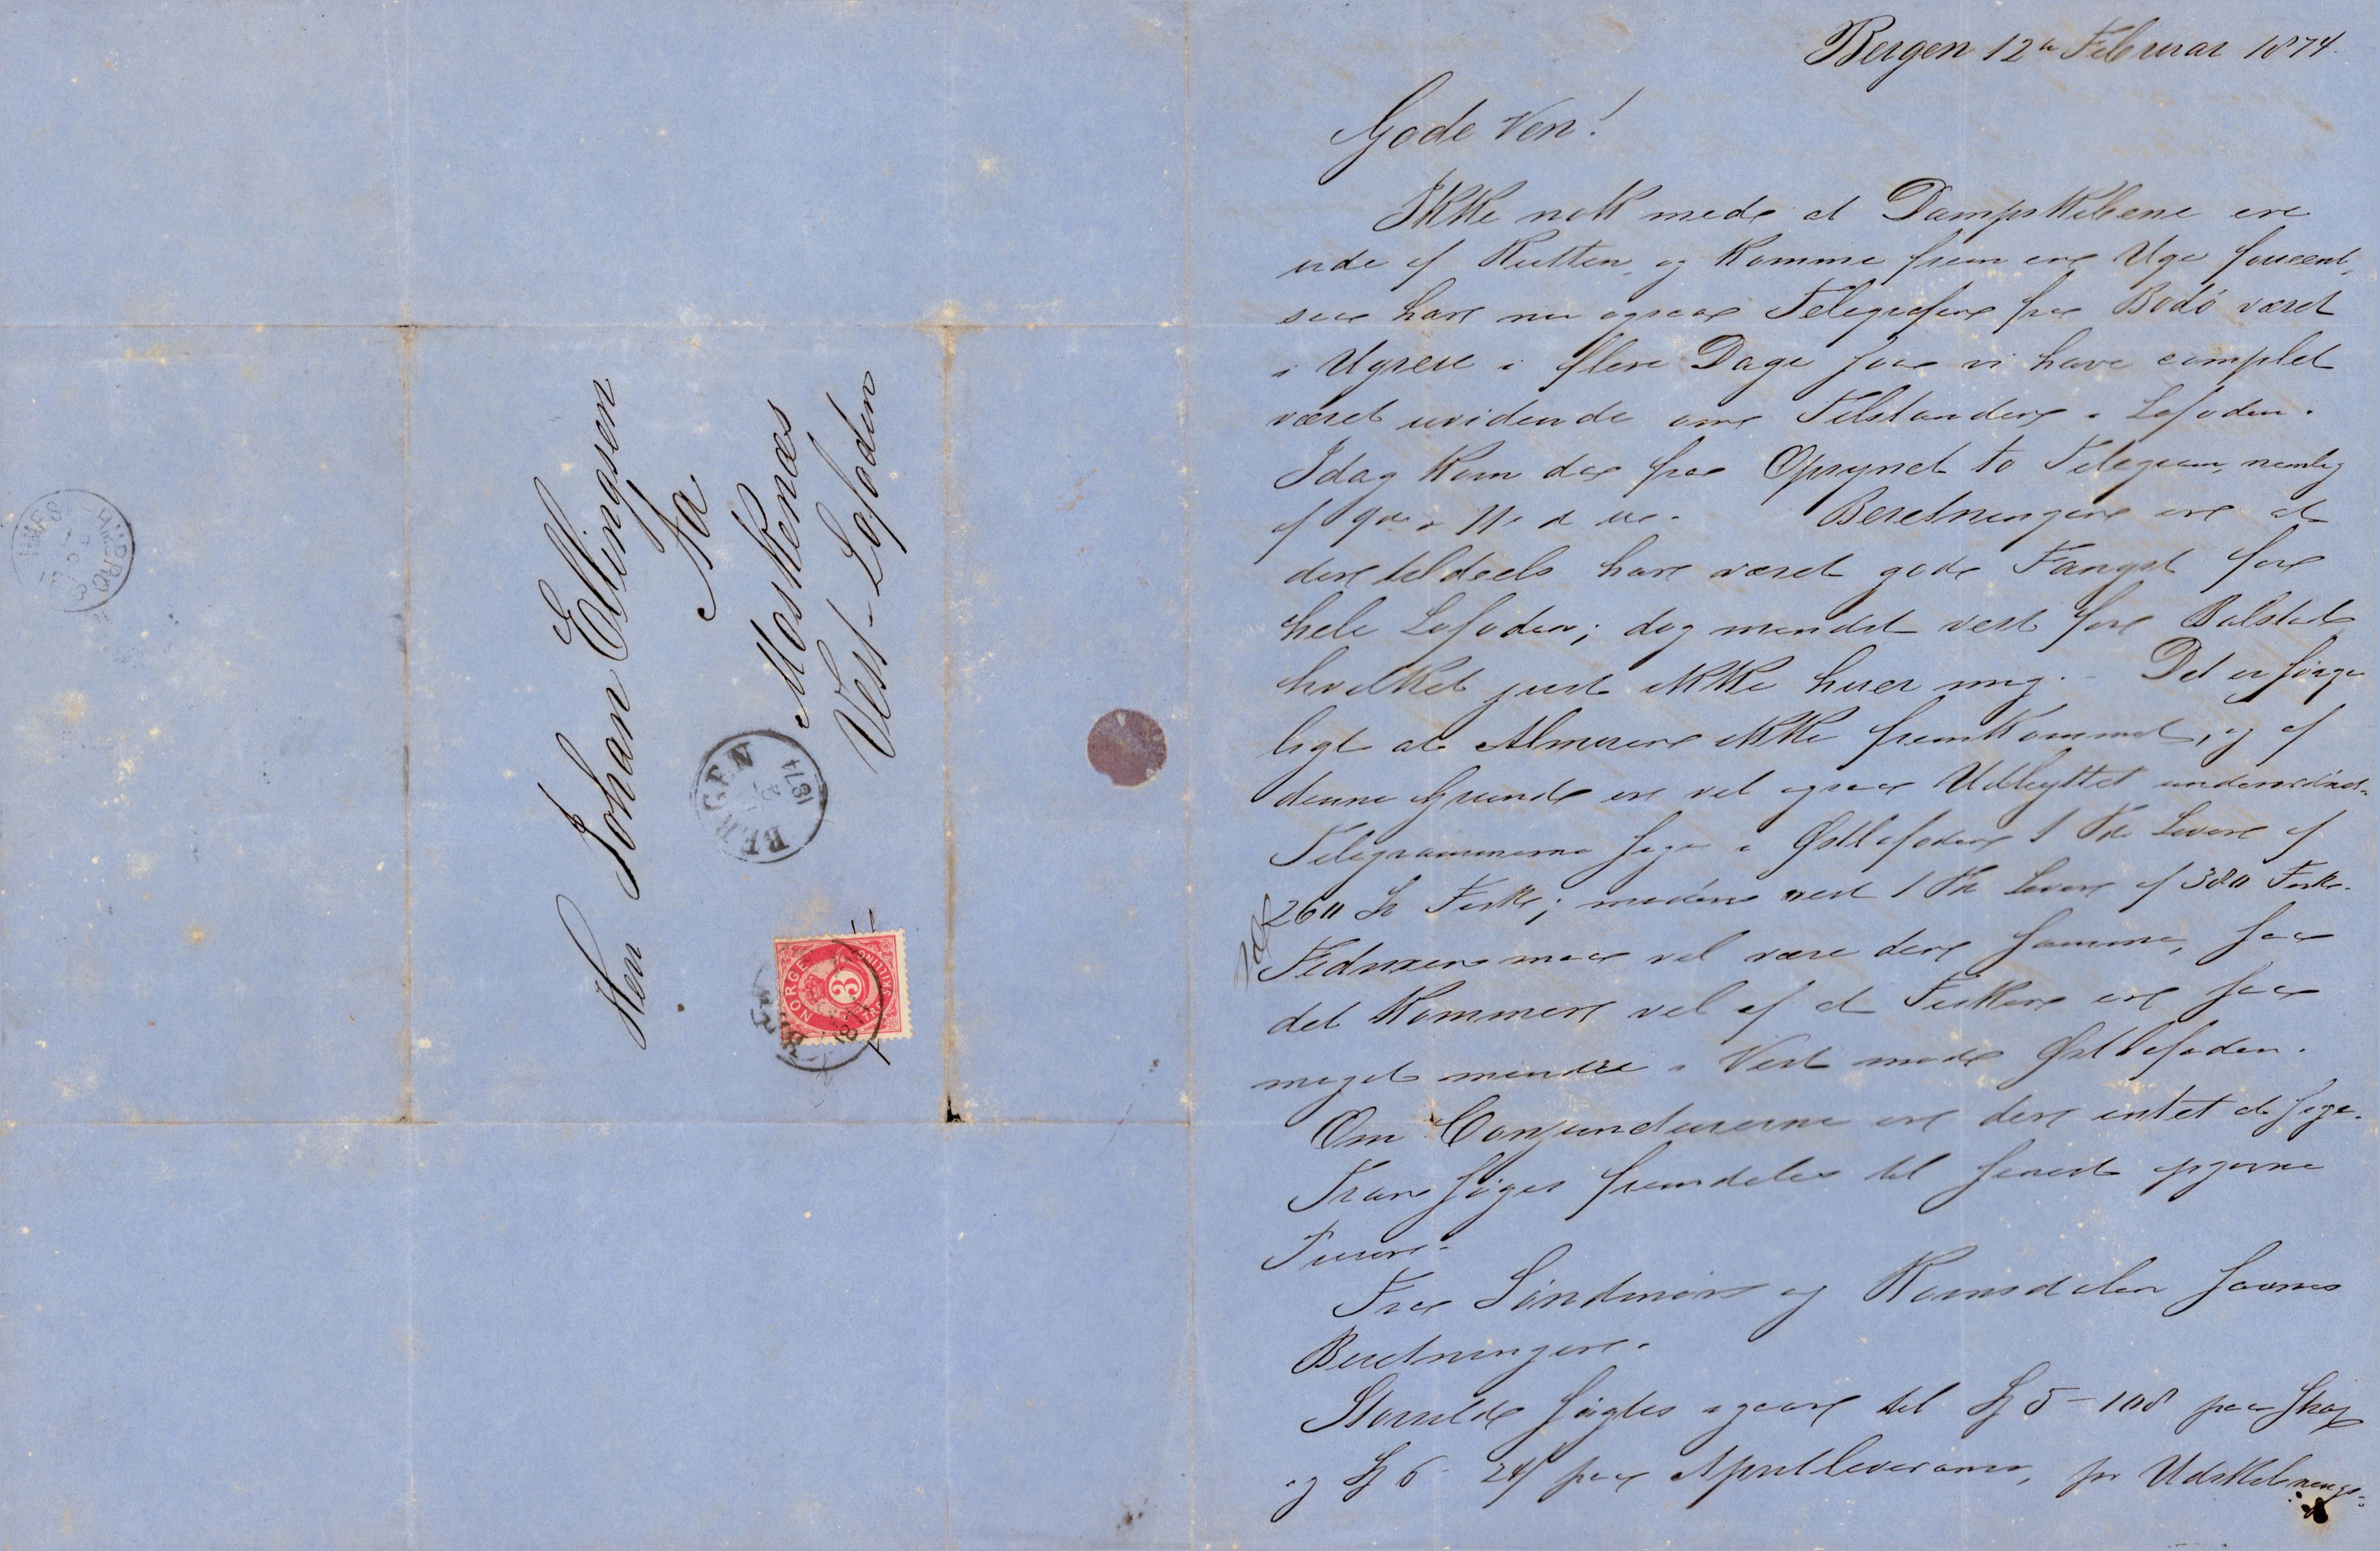 Bergen 12te Februar 1874.
Gode Ven!
Ikke nok med at Dampskibene ere
ude af Rutten og komme frem en Uge forseent,
saa har nu ogsaa Telegrafen fra Bodö været
i Ugreie i flere Dage saa vi have complet
været uvidende om Tilstanden i Lofoden.
Idag kom der fra Opsynet to Telegram, nemlig
af 9de & 11te d. Beretningen er at
der tildeels har været gode Fangst for
hele Lofoden; dog mindst vest for Balstad
hvilket just ikke huer mig. Det er sörge
ligt at Almuen ikke fremkommet, og af
denne Grund er vel ogsaa Udbyttet
Telegrammerne sige i Østlofoden 1 Td Lever af
260 St Fisk; medens vest 1 Td Lever af 380 Fisk.
Fedmen maa vel være den samme, saa
det kommer vel af at Fisken er saa
meget mindre i Vest mod Østlofoden.
Om Conjuncturerne er der intet at sige.
Tran söges fremdeles til senest opgivne
Priser.
Fra Söndmör og Romsdalen savnes
Beretninger.
Storsild solgtes igaar til 5 - 108 paa
og 6 - 24 paa Aprilleverance, pr Udskibnings-
Herr Johan Ellingsen
Aa
Moskenæs
Vest-Lofoden
BERGEN
2
1874
NORGE
3
TRE SKILLING
BERGEN